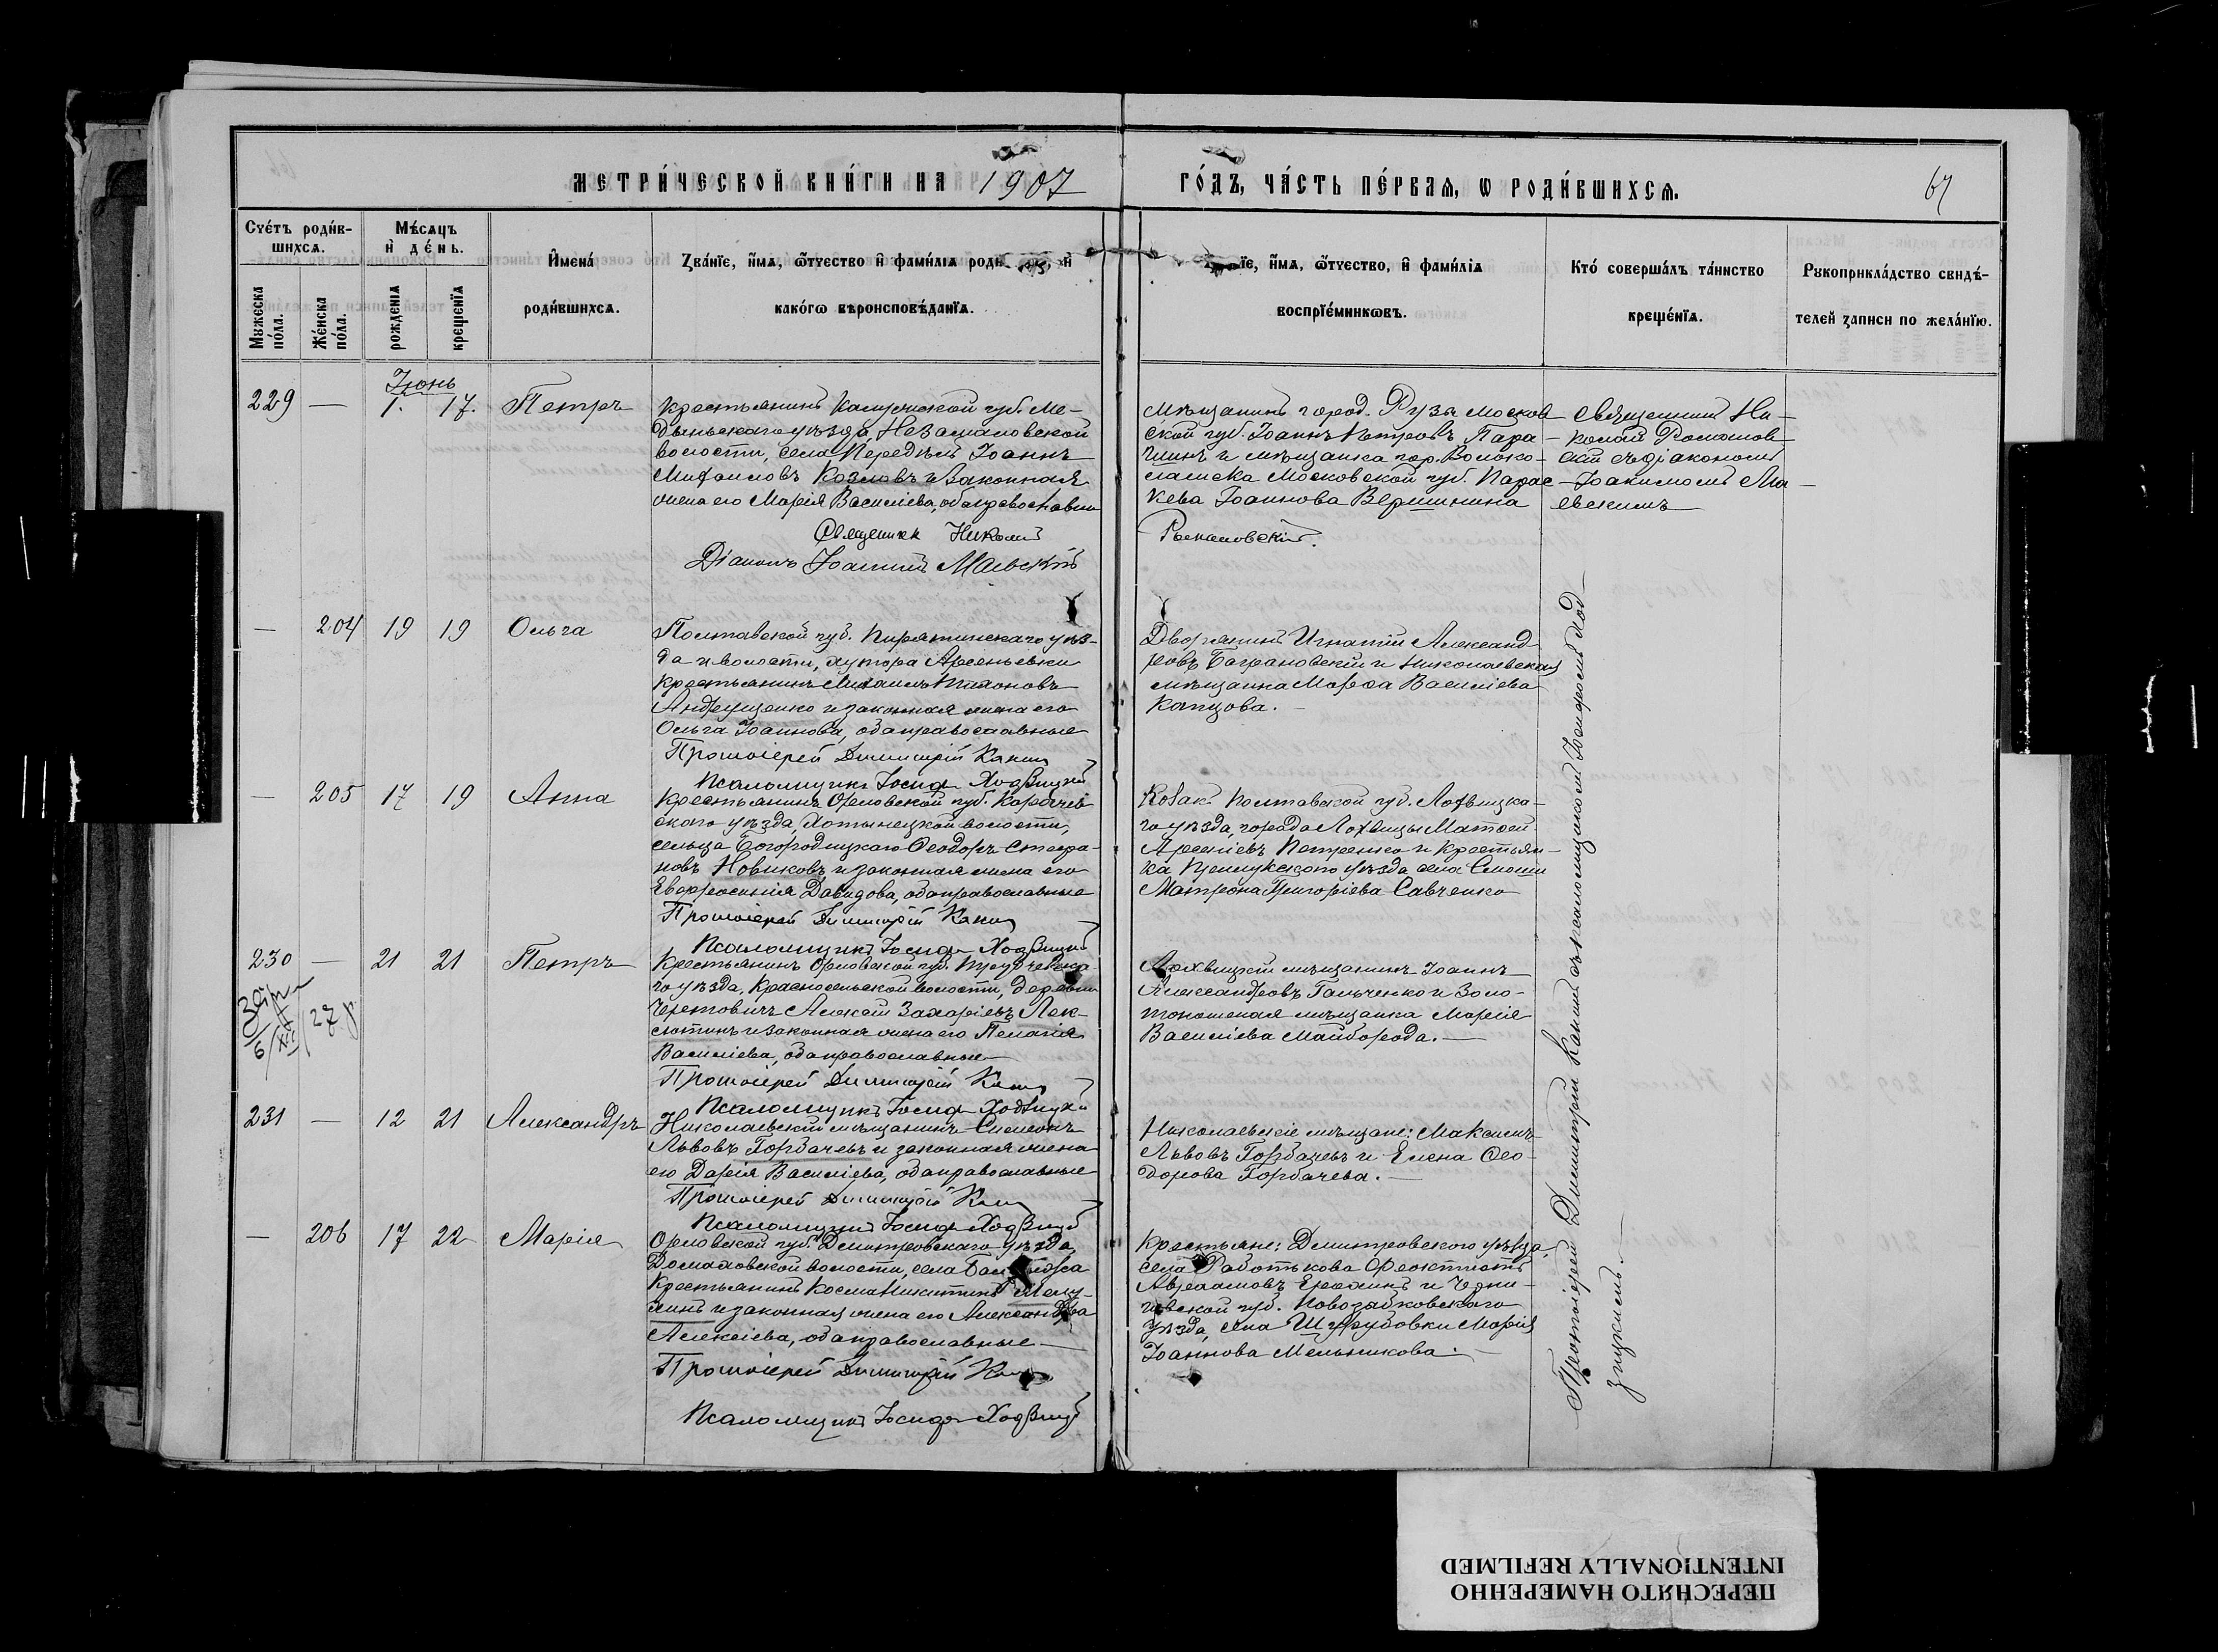 МЕТРИ́ЧЕСКОЙ КНИ́ГИ НА 1907 ГО́ДЪ, ЧА́СТЬ ПЕ́РВАѦ, Ѡ РОДИ́ВШИХСѦ.
67
Сче́тъ роди́в-
шихсѧ.
Мѣ́сѧцъ
и҆ де́нь.
Мꙋжеска
по́ла.
Же́нска
по́ла.
рожденїѧ
крещенїѧ
И҆мена́
роди́вшихсѧ.
Зва́нїе, и҆́мѧ, ѻ҆́тчество и҆ фами́лїѧ роди и҆
како́гѡ вѣроисповѣ́данїѧ.
їе, и҆́мѧ, ѻ҆́тчество, и҆ фами́лїѧ
воспрїе́мникѡвъ.
Кто́ соверша́лъ та́инство
креще́нїѧ.
Рꙋкоприкла́дство свидѣ́-
телей записи по жела́нїю.
Іюнь
229 — 1. 17. Петръ
Крестьянинъ Калужской губ. Ме-
дынскаго уѣзда, Незамаловской
волости, села Передѣлъ Іоаннъ
Михаиловъ Козловъ и законная
жена его Марія Василіева, оба православные
Священникъ Николай
Романовскій.
Діаконъ Іоакимъ Маевскій
Мѣщанинъ город. Рузы Москов-
ской губ. Іоаннъ Петровъ Пара-
шинъ и мѣщанка гор. Волоко-
ламска Московской губ. Парас-
кева Іоаннова Вершинина
Священникъ Ни-
колай Романов-
скій съ діакономъ
Іоакимомъ Ма-
евскимъ
— 204 19 19 Ольга
Полтавской губ. Пирятинскаго уѣз-
да и волости, хутора Арсеньевки
крестьянинъ Михаилъ
Андрущенко и законная жена его
Ольга Іоаннова, оба православные
Протоіерей Димитрій Канин
Псаломщикъ Іосифъ Ходзицкій
Дворянинъ Игнатій Александ-
ровъ Баграновскій и Николаевская
мѣщанка Марѳа Василіева
Капцова. —
— 205 17 19 Анна
Крестьянинъ Орловской губ. Карачев-
скаго уѣзда, Хотынецкой волости,
сельца Богородицкаго Ѳеодоръ Стефа-
новъ Новиковъ и законная жена его
Евфросинія Давидова, оба православные
Протоіерей Димитрій Канин
Псаломщикъ Іосифъ Ходзицкій
Козакъ Полтавской губ. Лохвицка-
го уѣзда, города Лохвицы Матѳей
Арсеніевъ Петренко и крестьян-
ка Прилукскаго уѣзда села Смоши
Матрона Григоріева Савченко
230 — 21 21 Петръ
6/XII 27 г
Крестьянинъ Орловской губ. Трубчевска-
го уѣзда, Красносельской волости, деревни
Алексій Захаріевъ Лек-
сютинъ и законная жена его Пелагія
Василіева, оба православные —
Протоіерей Димитрій Канин
Псаломщикъ Іосифъ Ходзицкій
Лохвицкій мѣщанинъ Іоаннъ
Александровъ Гальченко и Золо-
тоношская мѣщанка Марія
Василіева Майборода. —
231 — 12 21 Александръ
Николаевскій мѣщанинъ Симеонъ
Львовъ Горбачевъ и законная жена
его Дарія Василіева, оба православные
Протоіерей Димитрій Канин
Псаломщикъ Іосифъ Ходзицкій
Николаевскіе мѣщане: Максимъ
Львовъ Горбачевъ и Елена Ѳео-
дорова Горбачева. —
— 206 17 22 Марія
Орловской губ. Дмитровскаго уѣзда,
Домаховской волости, села
крестьянинъ Косма Никитинъ
и законная жена его Александра
Алексіева, оба православные —
Протоіерей Димитрій Канин
Псаломщикъ Іосифъ Ходзицкій
Крестьяне: Дмитровскаго уѣзда,
села Работькова Ѳеоктистъ
Авраамовъ и Черни-
говской губ. Новозыбковскаго
уѣзда, села Шурубовки Марія
Іоаннова Мельникова. —
Протоіерей Димитрій Канинъ съ псаломщикомъ Іосифомъ Ход-
зицкимъ. —
ПЕРЕСНЯТО НАМЕРЕННО
INTENTIONALLY REFILMED